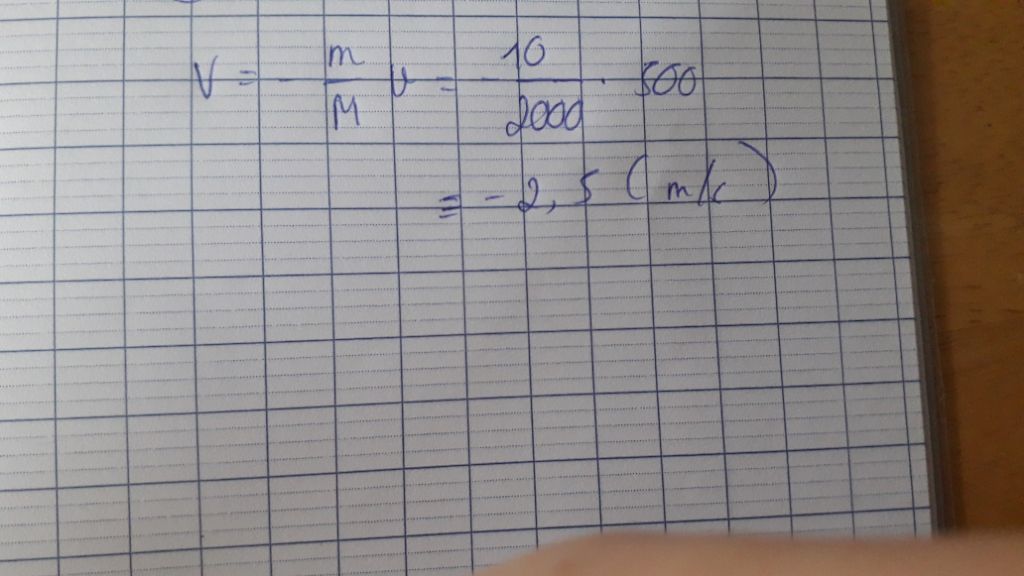 V = - m/M v = - 10/2000 . 500
= - 2,5 (m/s)